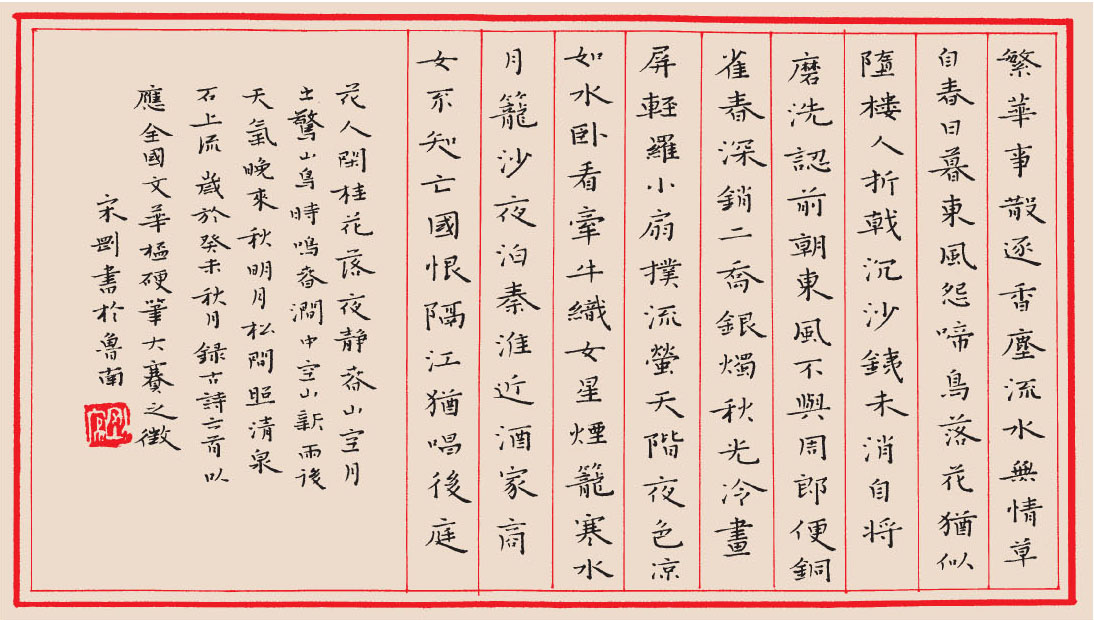 繁華事散逐香塵流水無情草
自春日暮東風怨啼鳥落花猶似
墮樓人折戟沉沙銕未消自将
磨洗認前朝東風不與周郎便銅
雀春深鎖二喬銀燭秋光冷畫
屏輕羅小扇撲流螢天階夜色凉
如水卧看牽牛織女星煙籠寒水
月籠沙夜泊秦淮近酒家商
女不知亡國恨隔江猶唱後庭
花人閑桂花落夜靜春山空月
出驚山鳥時鳴春澗中空山新雨後
天氣晚來秋明月松間照清泉
石上流 歲於癸未秋月録古詩六首以
應全國文華硬筆大賽之徵
宋剛書於魯南